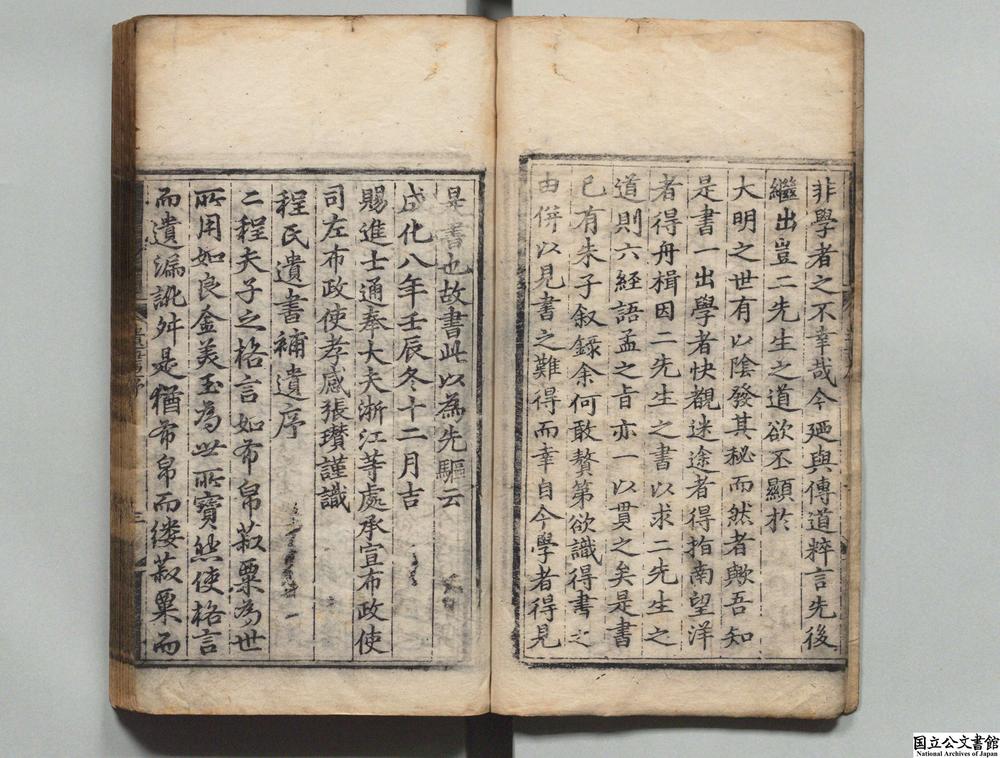 非學者之不幸哉今廼與傳道粹言先後
繼出豈二先生之道欲丕顯於
大明之世有以陰發其秘而然者歟吾知
是書一出學者快覩迷途者得指南望洋
者得舟楫因二先生之書以求二先生之
道則六經語孟之旨亦一以貫之矣是書
已有朱子叙錄余何敢贅第欲識得書之
由併以見書之難得而幸自今學者得見
是書也故書此以為先驅云
成化八年壬辰冬十二月吉
賜進士通奉大夫浙江等處承宣布政使
司左布政使孝感張瓚謹識
程氏遺書補遺序
二程夫子之格言如布帛菽粟為世
所用如良金美玉為世所寶然使格言
而遺漏訛舛是猶布帛而縷菽粟而
国立公文書館
National Archives of Japan